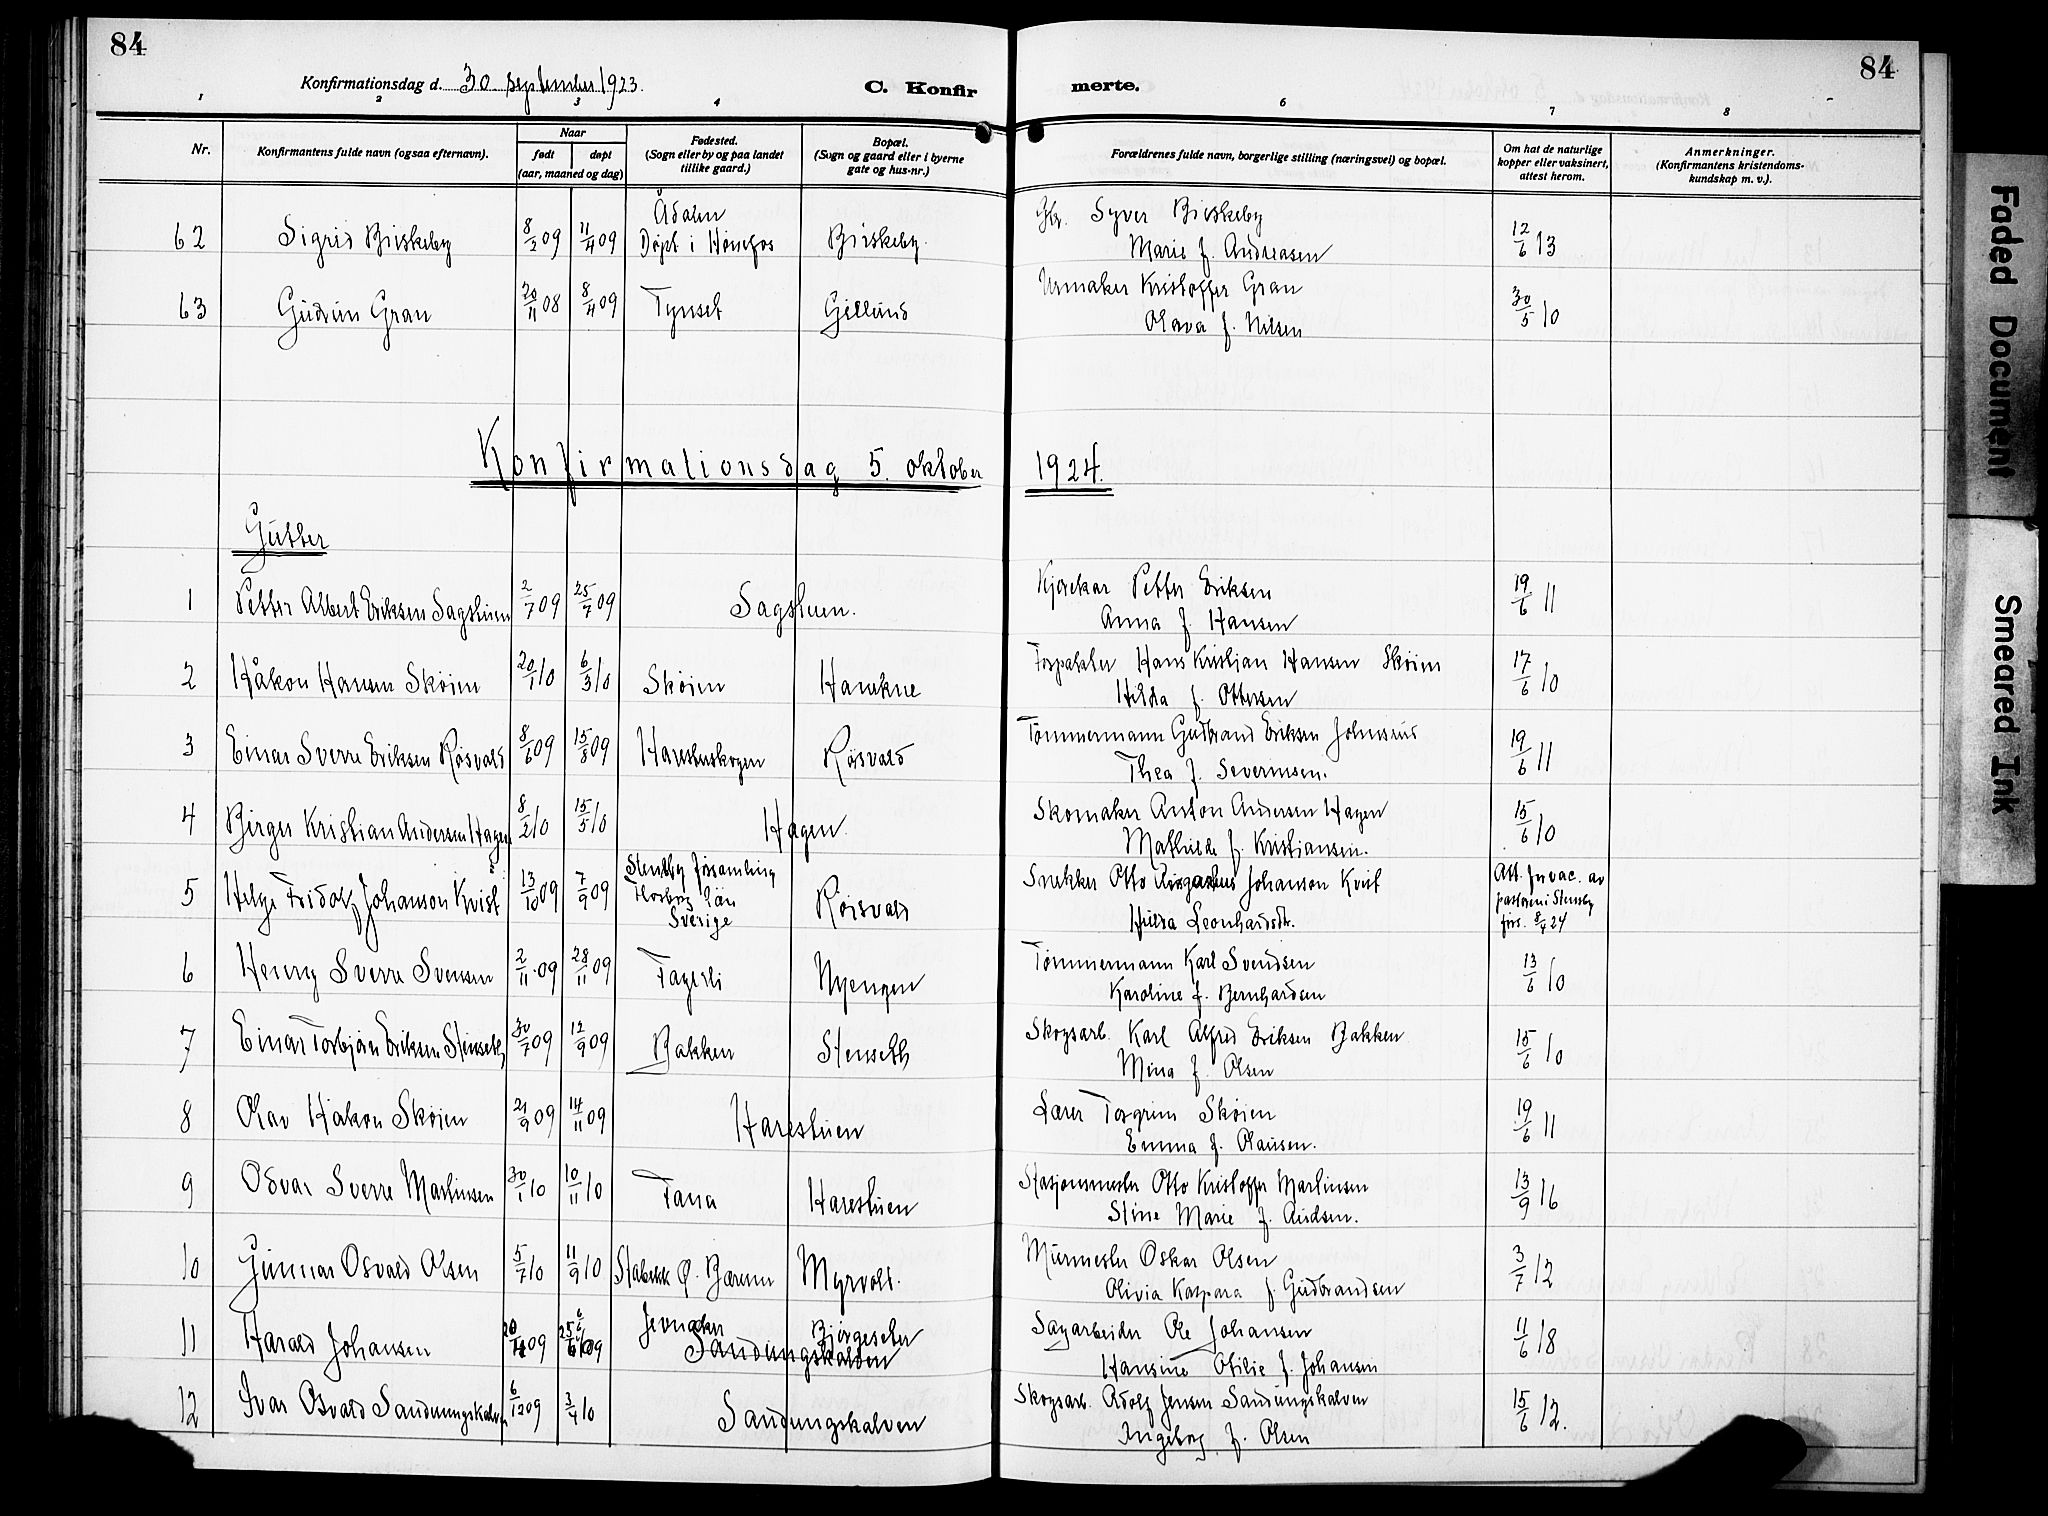 84
84
Konfirmationsdag d. 30. september 1923.
C. Konfir
merte.
1 2 3 4 5 6 7 8
Nr.
Konfirmantens fulde navn (ogsaa efternavn).
Naar
født
døpt
(aar, maaned og dag)
Fødested.
(Sogn eller by og paa landet
tillike gaard.)
Bopæl.
(Sogn og gaard eller i byerne
gate og hus-nr.)
Forældrenes fulde navn, borgerlige stilling (næringsvei) og bopæl.
Om hat de naturlige
kopper eller vaksinert,
attest herom.
Anmerkninger.
(Konfirmantens kristendoms-
kundskap m. v.).
62 Sigrid Birskeby 8/2 09 11/4 09 Ådalen
Døpt i Hønefos Birskeby. Syver Birskeby
Marie f. Andreasen 12/6 13
63 Gudrun Gran 20/11 08 8/4 09 Tynset Gillund Urmaker Kristoffer Gran
Olava f. Nilsen 30/5 10
Konfirmationsdag 5. oktober 1924.
Gutter
1 Petter Albert Eriksen Sagstuen 2/7 09 25/7 09 Sagstuen. Kjørekar Petter Eriksen
Anna f. Hansen 19/6 11
2 Håkon Hansen Skøien 20/1 10 6/3 10 Skøien Forpakter Hans Kristian Hansen Skøien
Hilda f. Ottersen 17/6 10
3 Einar Sverre Eriksen Røsvald 8/6 09 15/8 09 Harestuskogen Røisvald Tømmermann Gudbrand Eriksen Johnsrud
Thea f. Severinsen. 19/6 11
4 Birger Kristian Andersen Hagen 8/2 10 15/5 10 Hagen. Skomaker Anton Andersen Hagen
Mathilde f. Kristiansen. 15/6 10
5 Helge Fridolf Johanson Kvist 13/10 09 7/9 09 Stensby församling
län
Sverige Röisvald Snekker Otto Johanson Kvist
Hilda Leonhardsdtr. Att. for vac. av
pastoren i Stensby
förs. 8/4 24
6 Henry Sverre Svensen 2/11 09 28/11 09 Fagerli Nyengen Tømmermann Karl Svendsen
Karoline f. Bernhardsen 13/6 10
7 Einar Torbjørn Eriksen Stenseth 30/7 09 12/9 09 Bakken Stenseth Skogsarb. Karl Alfred Eriksen Bakken
Mina f. Olsen 15/6 10
8 Olav Håkon Skøien 21/9 09 14/11 09 Harestuen Lærer Torgrim Skøien
Emma f. Olausen. 19/6 11
9 Odvar Sverre Martinsen 30/1 10 10/11 10 Tana Harestuen Stasjonsmester Otto Kristoffer Martinsen
Stine Marie f. Amdsen. 13/9 16
10 Gunnar Osvald Olsen 5/7 10 11/9 10 Stabekk Ø. Bærum Myrvold. Murmester Oskar Olsen
Olivia Kaspara f. Gudbrandsen 3/7 12
11 Harald Johansen 20/4 09 Jevnaker Bjørgeseter
Sandungskalven Sagarbeider Ole Johansen
Hansine Otilie f. Johansen 11/6 18
12 Ivar Osvald Sandungskalven 6/12 09 3/4 10 Sandungskalven Skogsarb. Adolf Jensen Sandungskalven
Ingeborg f. Olsen 15/6 12.
Faded Document
Smeared Ink